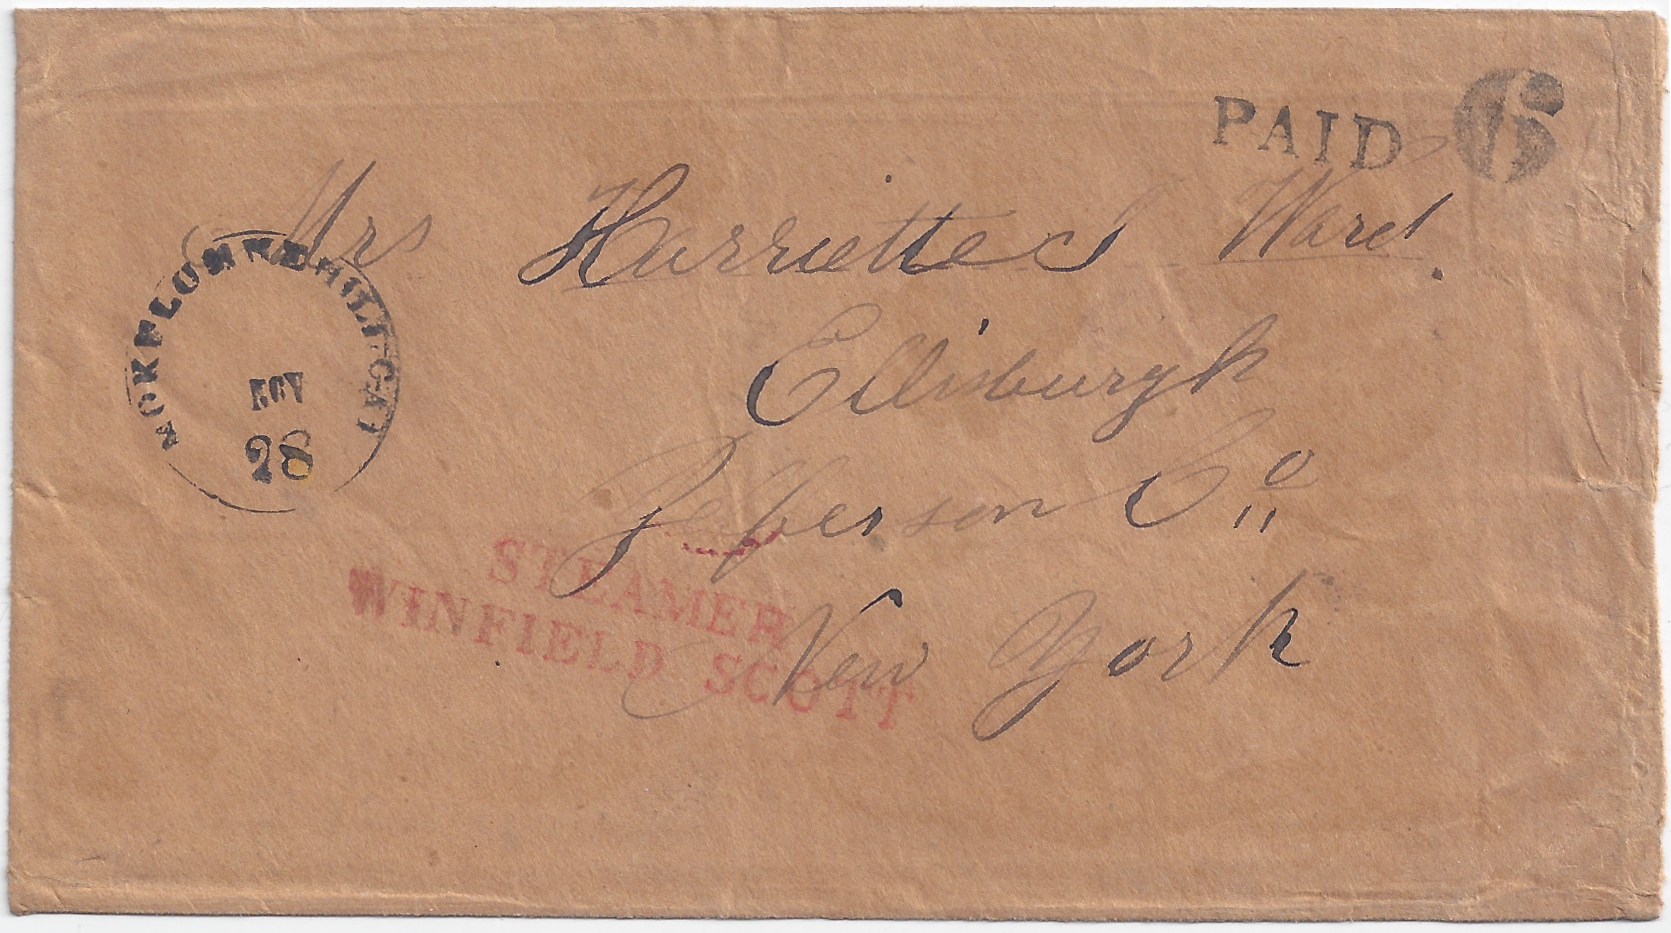 PAID 6
Mrs Harriette J Ward.
MOKELUMNE HILL CAL
NOV
28
Ellisburgh
Jefferson Co
New York
STEAMER
WINFIELD SCOTT